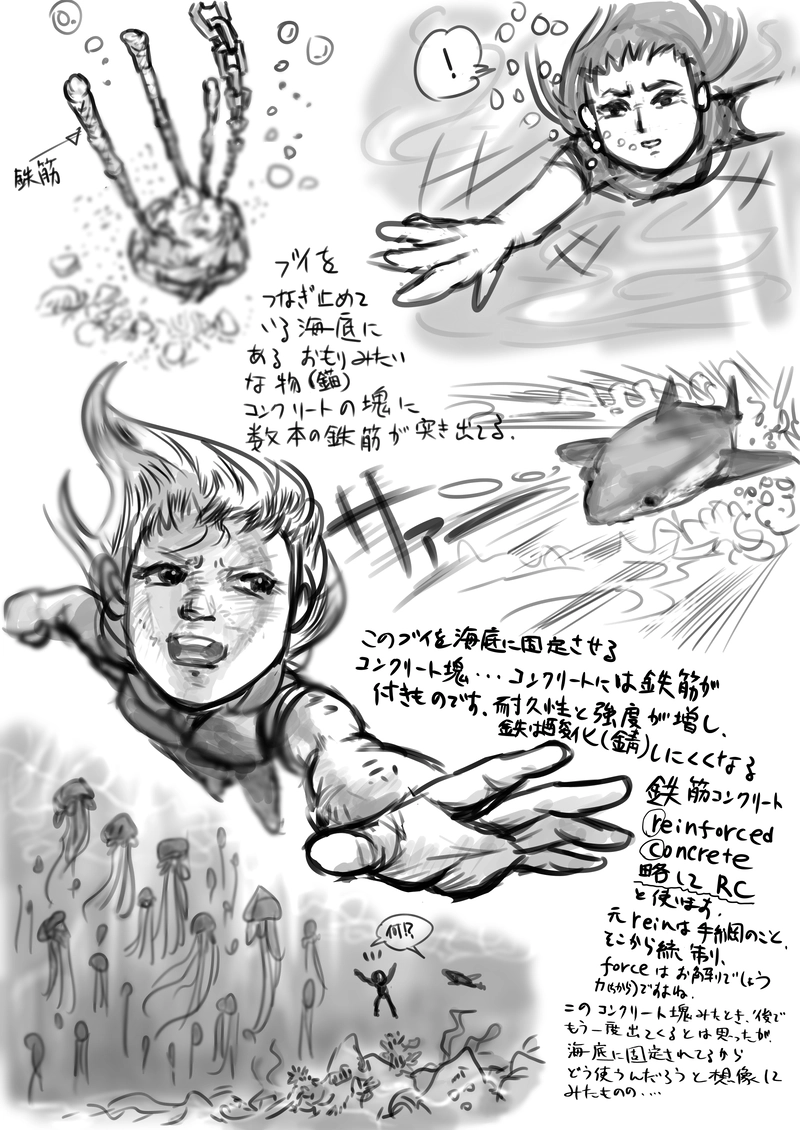 鉄筋
!
ブイを
つなぎ止めて
いる海底に
ある おもりみたい
な物(錨)
コンクリートの塊に
数本の鉄筋が突き出てる.
サァー
このブイを海底に固定させる
コンクリート塊・・・コンクリートには鉄筋が
付きものです、耐久性と強度が増し、
鉄は酸化(錆)しにくくなる
鉄筋コンクリート
reinforced
concrete
略して RC
と使います。
元reinは手綱のこと、
そこから統制り、
forceはお解りでしょう
力(ちから)ですよね。
何!?
このコンクリート塊みたとき、後で
もう一度出てくるとは思ったが、
海底に固定されてるから
どう使うんだろうと想像して
みたものの・・・・